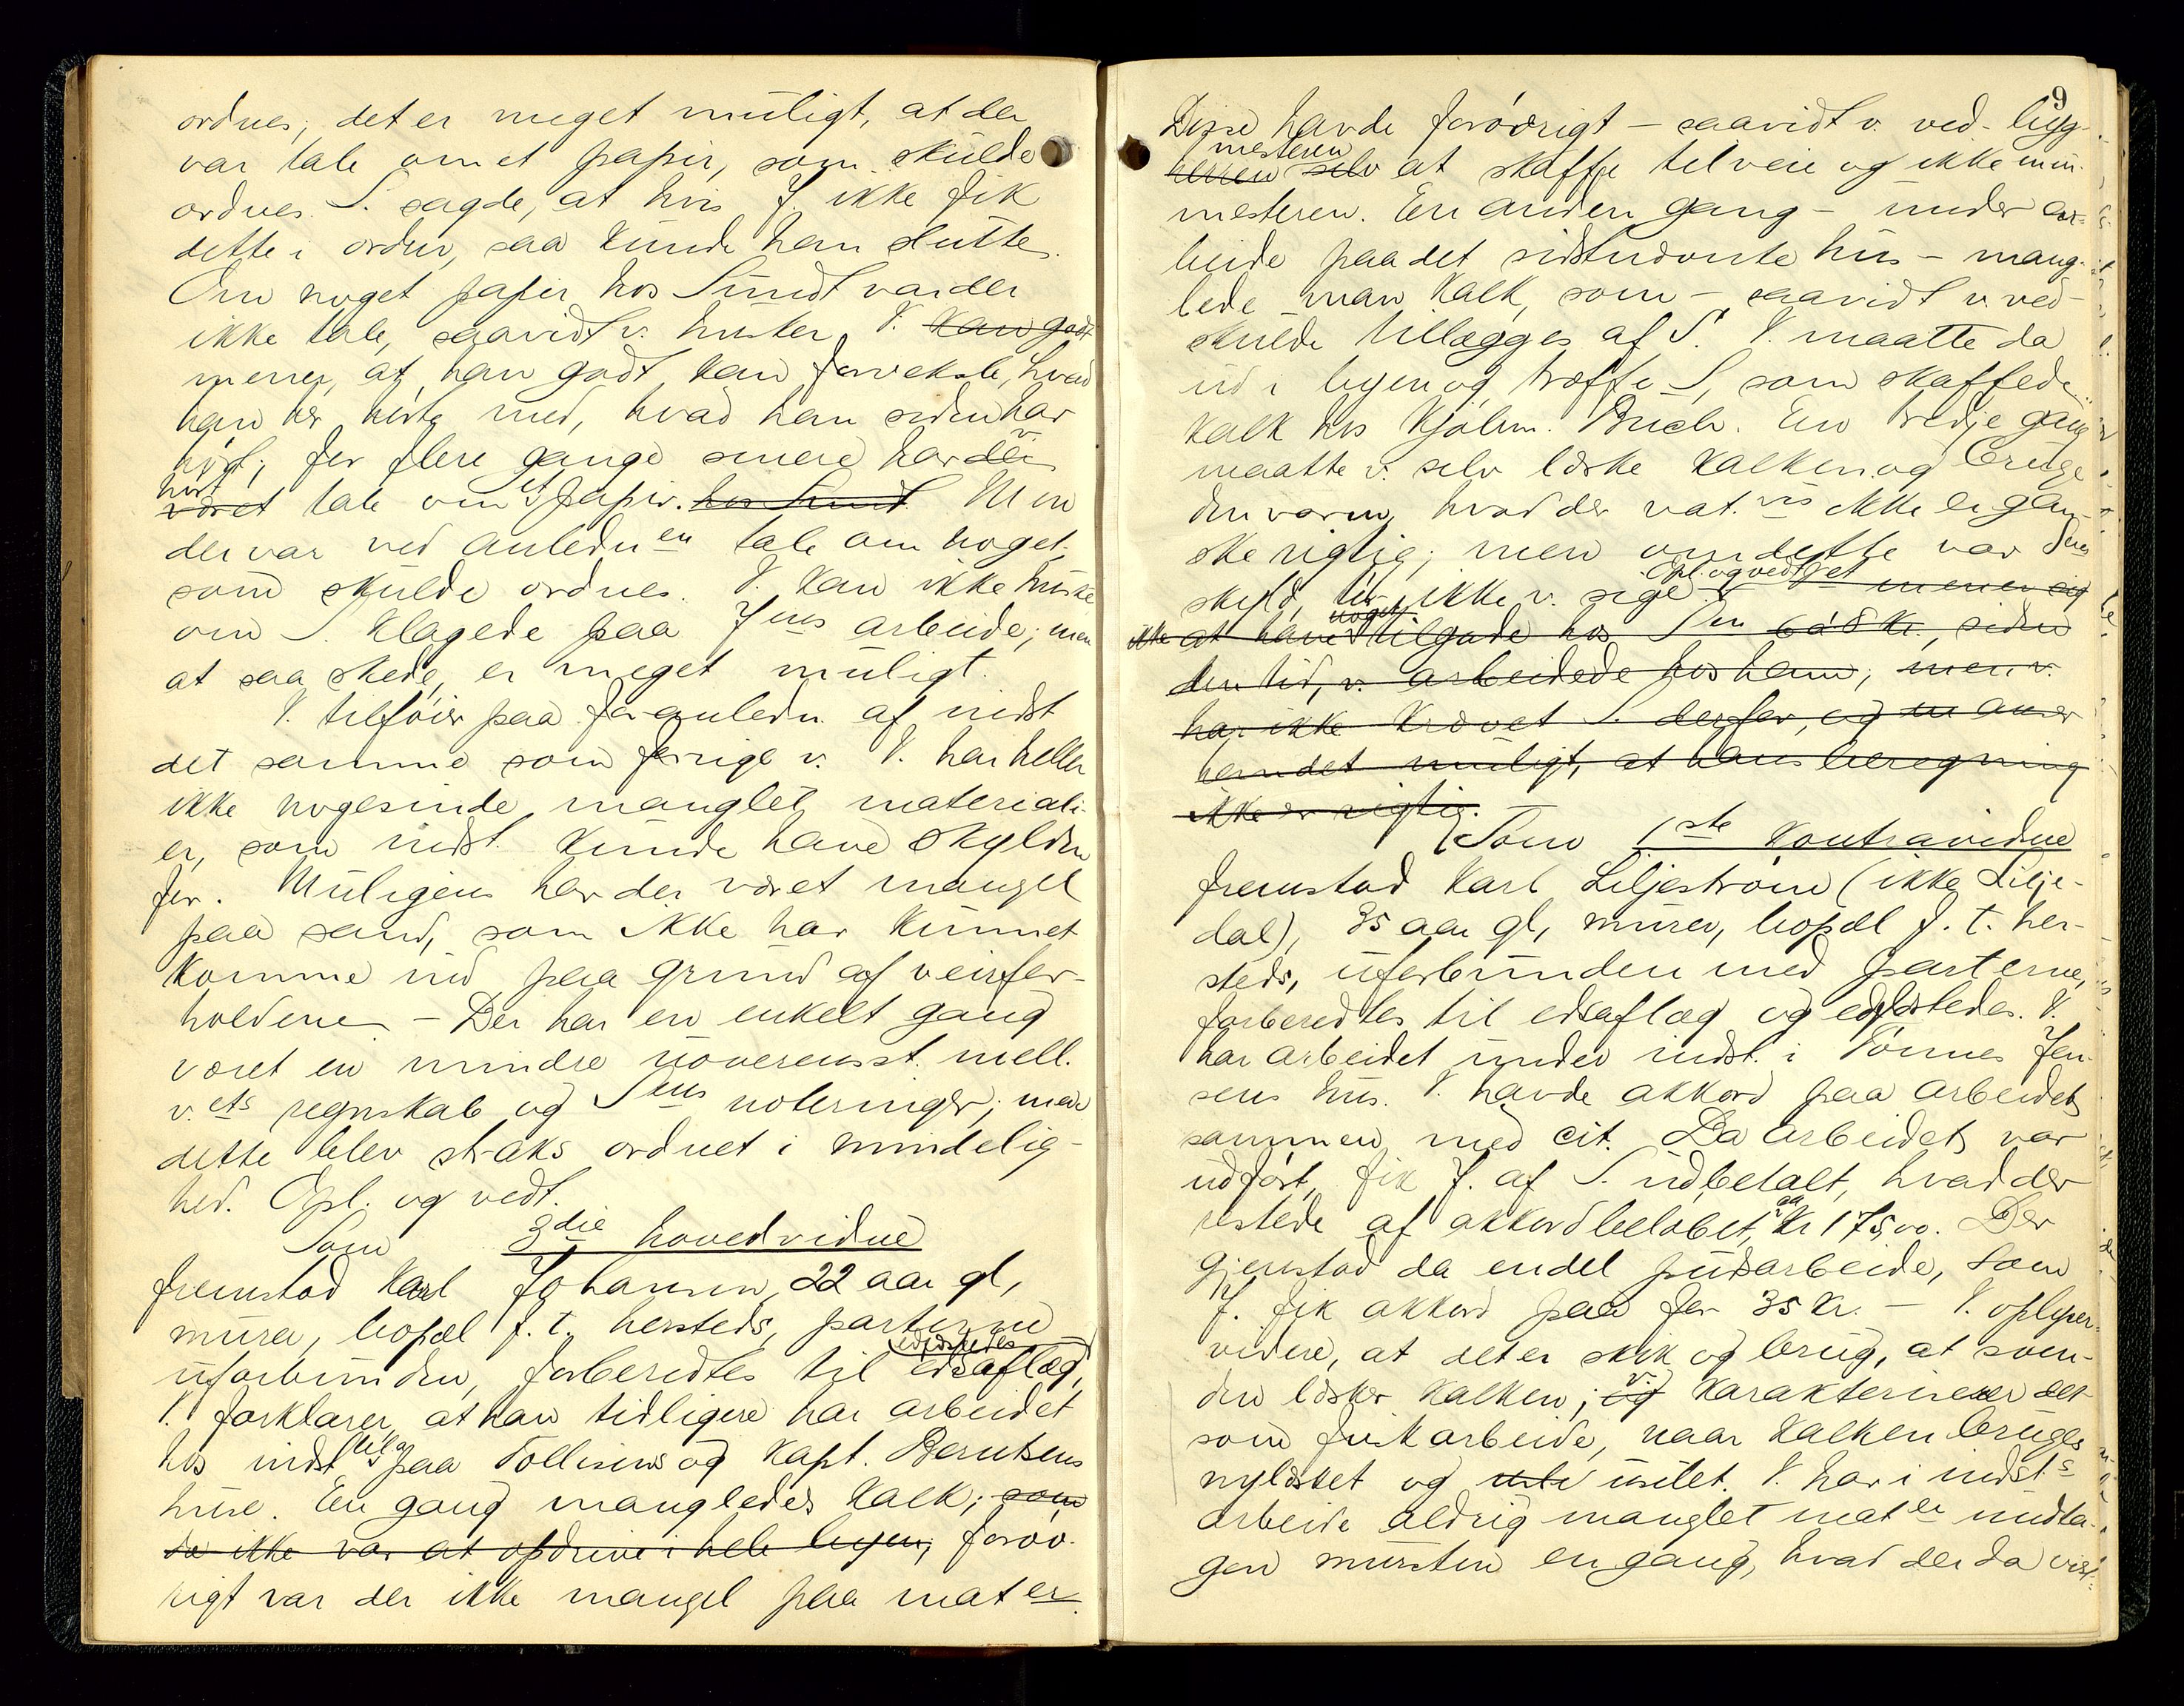 ordnes; det er meget muligt, at der
var tale om et papir, som skulde
ordnes. S. sagde, at hvis J. ikke fik
dette i orden, saa kunde han slutte.
Om noget papir hos Sundt var der
ikke tale, saavidt v. husker. V. kan godt
mener, at han godt kan forveksle, hvad
han her hørte med, hvad han siden har
hørt; for flere gange senere har der v.
hørt
været tale om et papir. hos Sundt Men
der var ved anledn en tale om noget,
som skulde ordnes. V. kan ikke huske
om S. klagede paa J ens arbeide; men
at saa skede, er meget muligt.
V. tilføier paa foranledn. af indst
det samme som forrige v. V. har heller
ikke nogesinde manglet materiali-
er, som indst. kunde have skylden
for. Muligens har der været mangel
paa sand, som ikke har kunnet
komme ind paa grund af veirfor-
holdene. - Der har en enkelt gang
været en mindre uoverensst. mell.
v. ets regnskab og S ens noteringer; men
dette blev straks ordnet i mindelig-
hed. Opl. og vedt.
Som 3die hovedvidne
fremstod Karl Johansen, 22 aar gl,
murer, bopæl f. t. hersteds, parterne
edfæstedes
uforbunden, forberedtes til edsaflæg,
V. forklarer, at han tidligere har arbeidet
hos indst paa Tollisens og kapt. Berntsens
huse. En gang mangledes kalk; som
da ikke var at opdrive i hele byen; forøv-
rigt var der ikke mangel paa mat er.
9
Disse havde forøvrigt - saavidt v. ved - byg-
mesteren
herren selv at skaffe tilveie og ikke mur-
mesteren. En anden gang - under ar-
beide paa det sidstnævnte hus - mang-
lede man kalk, som - saavidt v. ved -
skulde tillægges af S. V. maatte da
ud i byen og træffe S, som skaffede
kalk hos Kjøbm. Buch. En tredje gang
maatte v. selv læske kalken og bruge
den varm, hvad der nat. vis ikke er gan-
ske rigtig; men om dette var S ens
skyld, tør ikke v. sige. Opl. og vedt et V. mener sig
ikke at have noget tilgode hos S en 6 à 8 kr., siden
den tid, v. arbeidede hos ham; men v.
har ikke krævet S. derfor, og m anser
hendet muligt, at hans beregning
ikke er rigtig.
Som 1ste kontravidne
fremstod Karl Liljestrøm (ikke Lilje-
dal), 35 aar gl, murer, bopæl f. t. her-
steds, uforbunden med parterne,
forberedtes til edsaflæg og edfæstedes. V.
har arbeidet under indst. i Tønnes Jen-
sens hus. V. havde akkord paa arbeidet
sammen med cit. Da arbeidet var
udført, fik J. af S. udbetalt, hvad der
restede af akkordbeløbet, aa kr 175,00. Der
gjenstod da endel pudsarbeide, som
J. fik akkord paa for 35 kr. - V. oplyser
videre, at det er skik og brug, at sven-
den læsker kalken; og v. karakteriserer det
som fuskarbeide, naar kalken bruges
nylæsket og usilet. V. har i indst s
arbeide aldrig manglet mat er undta-
gen mursten en gang, hvad der da vist-